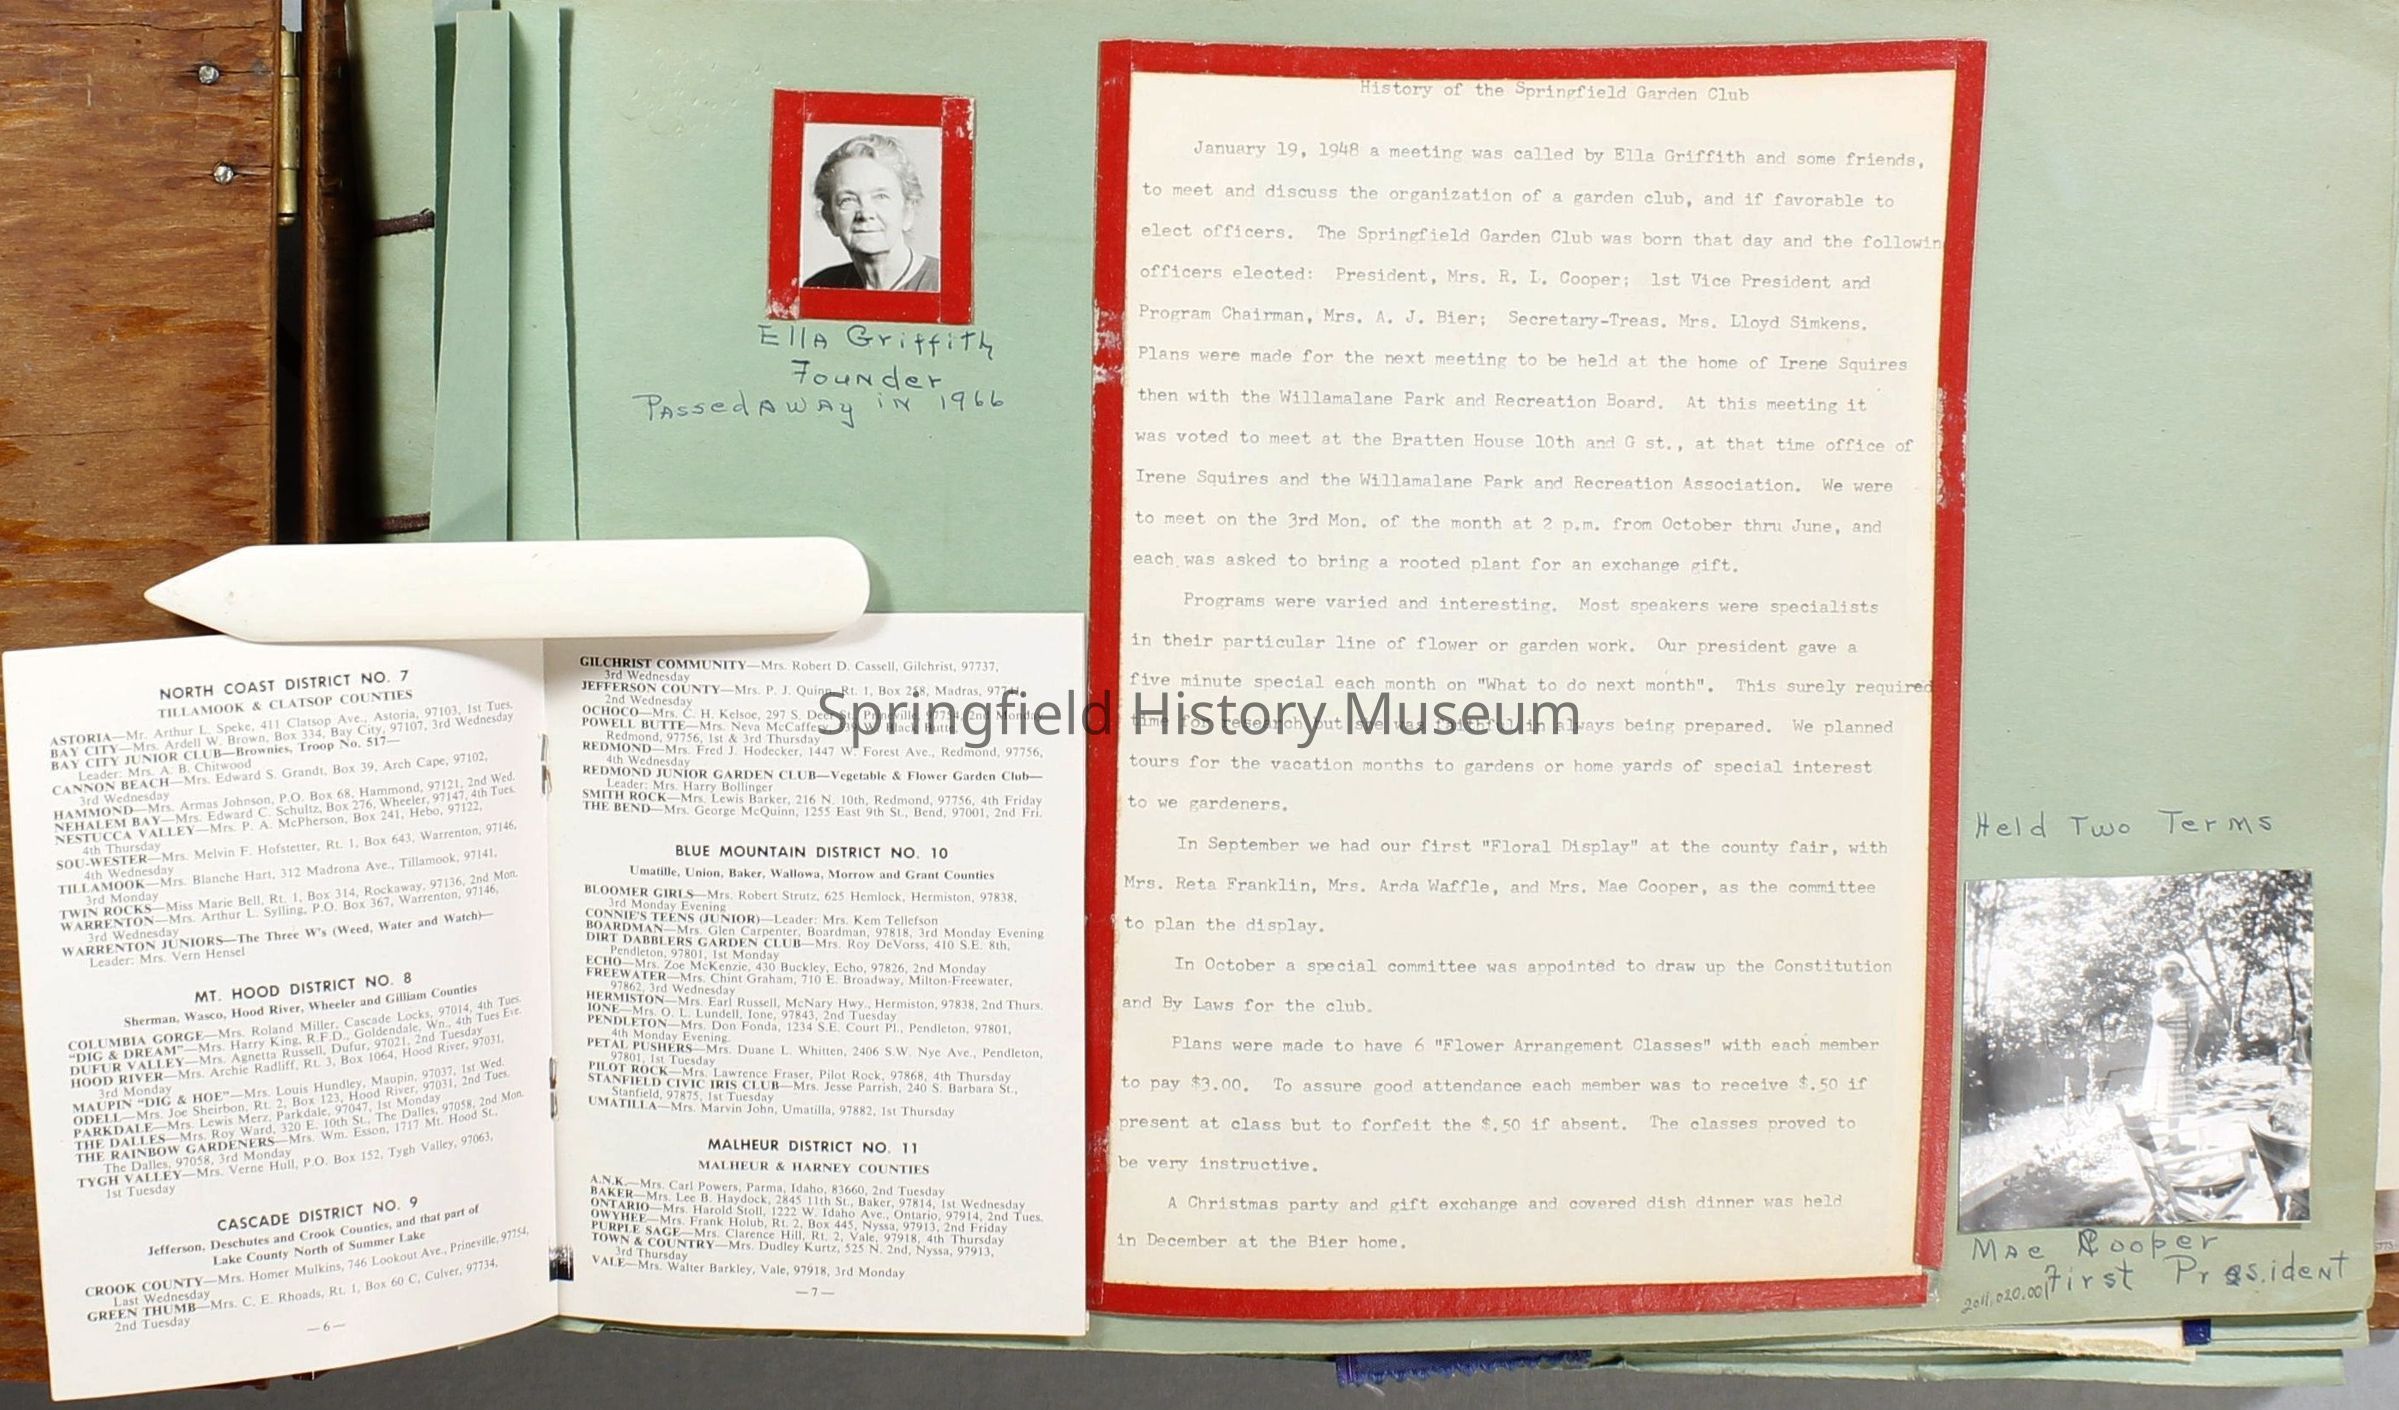 Ella Griffith
Founder
Passed Away in 1966
History of the Springfield Garden Club
January 19, 1948 a meeting was called by Ella Griffith and some friends,
to meet and discuss the organization of a garden club, and if favorable to
elect officers. The Springfield Garden Club was born that day and the followin
officers elected: President, Mrs. R. L. Cooper; 1st Vice President and
Program Chairman, Mrs. A. J. Bier; Secretary-Treas. Mrs. Lloyd Simkens.
Plans were made for the next meeting to be held at the home of Irene Squires
then with the Willamalane Park and Recreation Board. At this meeting it
was voted to meet at the Bratten House 10th and G st., at that time office of
Irene Squires and the Willamalane Park and Recreation Association. We were
to meet on the 3rd Mon. of the month at 2 p.m. from October thru June, and
each was asked to bring a rooted plant for an exchange gift.
Programs were varied and interesting. Most speakers were specialists
in their particular line of flower or garden work. Our president gave a
five minute special each month on "What to do next month". This surely required
time for research but she was faithful in always being prepared. We planned
tours for the vacation months to gardens or home yards of special interest
to we gardeners.
In September we had our first "Floral Display" at the county fair, with
Mrs. Reta Franklin, Mrs. Arda Waffle, and Mrs. Mae Cooper, as the committee
to plan the display.
In October a special committee was appointed to draw up the Constitution
and By Laws for the club.
Plans were made to have 6 "Flower Arrangement Classes" with each member
to pay $3.00. To assure good attendance each member was to receive $.50 if
present at class but to forfeit the $.50 if absent. The classes proved to
be very instructive.
A Christmas party and gift exchange and covered dish dinner was held
in December at the Bier home.
Held Two Terms
Mae Cooper
First President
2011.020.001
NORTH COAST DISTRICT NO. 7
TILLAMOOK & CLATSOP COUNTIES
ASTORIA—Mr. Arthur L. Speke, 411 Clatsop Ave., Astoria, 97103, 1st Tues.
BAY CITY—Mrs. Ardell W. Brown, Box 334, Bay City, 97107, 3rd Wednesday
BAY CITY JUNIOR CLUB—Brownies, Troop No. 517—
Leader: Mrs. A. B. Chitwood
CANNON BEACH—Mrs. Edward S. Grandt, Box 39, Arch Cape, 97102,
3rd Wednesday
HAMMOND—Mrs. Armas Johnson, P.O. Box 68, Hammond, 97121, 2nd Wed.
NEHALEM BAY—Mrs. Edward C. Schultz, Box 276, Wheeler, 97147, 4th Tues.
NESTUCCA VALLEY—Mrs. P. A. McPherson, Box 241, Hebo, 97122,
4th Thursday
SOU-WESTER—Mrs. Melvin F. Hofstetter, Rt. 1, Box 643, Warrenton, 97146,
4th Wednesday
TILLAMOOK—Mrs. Blanche Hart, 312 Madrona Ave., Tillamook, 97141,
3rd Monday
TWIN ROCKS—Miss Marie Bell, Rt. 1, Box 314, Rockaway, 97136, 2nd Mon.
WARRENTON—Mrs. Arthur L. Sylling, P.O. Box 367, Warrenton, 97146,
3rd Wednesday
WARRENTON JUNIORS—The Three W's (Weed, Water and Watch)—
Leader: Mrs. Vern Hensel
MT. HOOD DISTRICT NO. 8
Sherman, Wasco, Hood River, Wheeler and Gilliam Counties
COLUMBIA GORGE—Mrs. Roland Miller, Cascade Locks, 97014, 4th Tues.
"DIG & DREAM"—Mrs. Harry King, R.F.D., Goldendale, Wn., 4th Tues Eve.
DUFUR VALLEY—Mrs. Agnetta Russell, Dufur, 97021, 2nd Tuesday
HOOD RIVER—Mrs. Archie Radliff, Rt. 3, Box 1064, Hood River, 97031,
3rd Monday
MAUPIN "DIG & HOE"—Mrs. Louis Hundley, Maupin, 97037, 1st Wed.
ODELL—Mrs. Joe Sheirbon, Rt. 2, Box 123, Hood River, 97031, 2nd Tues.
PARKDALE—Mrs. Lewis Merz, Parkdale, 97047, 1st Monday
THE DALLES—Mrs. Roy Ward, 320 E. 10th St., The Dalles, 97058, 2nd Mon.
THE RAINBOW GARDENERS—Mrs. Wm. Esson, 1717 Mt. Hood St.,
The Dalles, 97058, 3rd Monday
TYGH VALLEY—Mrs. Verne Hull, P.O. Box 152, Tygh Valley, 97063,
1st Tuesday
CASCADE DISTRICT NO. 9
Jefferson, Deschutes and Crook Counties, and that part of
Lake County North of Summer Lake
CROOK COUNTY—Mrs. Homer Mulkins, 746 Lookout Ave., Prineville, 97754,
Last Wednesday
GREEN THUMB—Mrs. C. E. Rhoads, Rt. 1, Box 60 C, Culver, 97734,
2nd Tuesday
—6—
GILCHRIST COMMUNITY—Mrs. Robert D. Cassell, Gilchrist, 97737,
3rd Wednesday
JEFFERSON COUNTY—Mrs. P. J. Quinn, Rt. 1, Box 258, Madras, 97741,
2nd Wednesday
OCHOCO—Mrs. C. H. Kelsoe, 297 S. Deer St., Prineville, 97754, 2nd Monday
POWELL BUTTE—Mrs. Neva McCaffery, W. Black Butte
Redmond, 97756, 1st & 3rd Thursday
REDMOND—Mrs. Fred J. Hodecker, 1447 W. Forest Ave., Redmond, 97756,
4th Wednesday
REDMOND JUNIOR GARDEN CLUB—Vegetable & Flower Garden Club—
Leader: Mrs. Harry Bollinger
SMITH ROCK—Mrs. Lewis Barker, 216 N. 10th, Redmond, 97756, 4th Friday
THE BEND—Mrs. George McQuinn, 1255 East 9th St., Bend, 97001, 2nd Fri.
BLUE MOUNTAIN DISTRICT NO. 10
Umatille, Union, Baker, Wallowa, Morrow and Grant Counties
BLOOMER GIRLS—Mrs. Robert Strutz, 625 Hemlock, Hermiston, 97838,
3rd Monday Evening
CONNIE'S TEENS (JUNIOR)—Leader: Mrs. Kem Tellefson
BOARDMAN—Mrs. Glen Carpenter, Boardman, 97818, 3rd Monday Evening
DIRT DABBLERS GARDEN CLUB—Mrs. Roy DeVorss, 410 S.E. 8th,
Pendleton, 97801, 1st Monday
ECHO—Mrs. Zoe McKenzie, 430 Buckley, Echo, 97826, 2nd Monday
FREEWATER—Mrs. Chint Graham, 710 E. Broadway, Milton-Freewater,
97862, 3rd Wednesday
HERMISTON—Mrs. Earl Russell, McNary Hwy., Hermiston, 97838, 2nd Thurs.
IONE—Mrs. O. L. Lundell, Ione, 97843, 2nd Tuesday
PENDLETON—Mrs. Don Fonda, 1234 S.E. Court Pl., Pendleton, 97801,
4th Monday Evening
PETAL PUSHERS—Mrs. Duane L. Whitten, 2406 S.W. Nye Ave., Pendleton,
97801, 1st Tuesday
PILOT ROCK—Mrs. Lawrence Fraser, Pilot Rock, 97868, 4th Thursday
STANFIELD CIVIC IRIS CLUB—Mrs. Jesse Parrish, 240 S. Barbara St.,
Stanfield, 97875, 1st Tuesday
UMATILLA—Mrs. Marvin John, Umatilla, 97882, 1st Thursday
MALHEUR DISTRICT NO. 11
MALHEUR & HARNEY COUNTIES
A.N.K.—Mrs. Carl Powers, Parma, Idaho, 83660, 2nd Tuesday
BAKER—Mrs. Lee B. Haydock, 2845 11th St., Baker, 97814, 1st Wednesday
ONTARIO—Mrs. Harold Stoll, 1222 W. Idaho Ave., Ontario, 97914, 2nd Tues.
OWYHEE—Mrs. Frank Holub, Rt. 2, Box 445, Nyssa, 97913, 2nd Friday
PURPLE SAGE—Mrs. Clarence Hill, Rt. 2, Vale, 97918, 4th Thursday
TOWN & COUNTRY—Mrs. Dudley Kurtz, 525 N. 2nd, Nyssa, 97913,
3rd Thursday
VALE—Mrs. Walter Barkley, Vale, 97918, 3rd Monday
—7—
Springfield History Museum